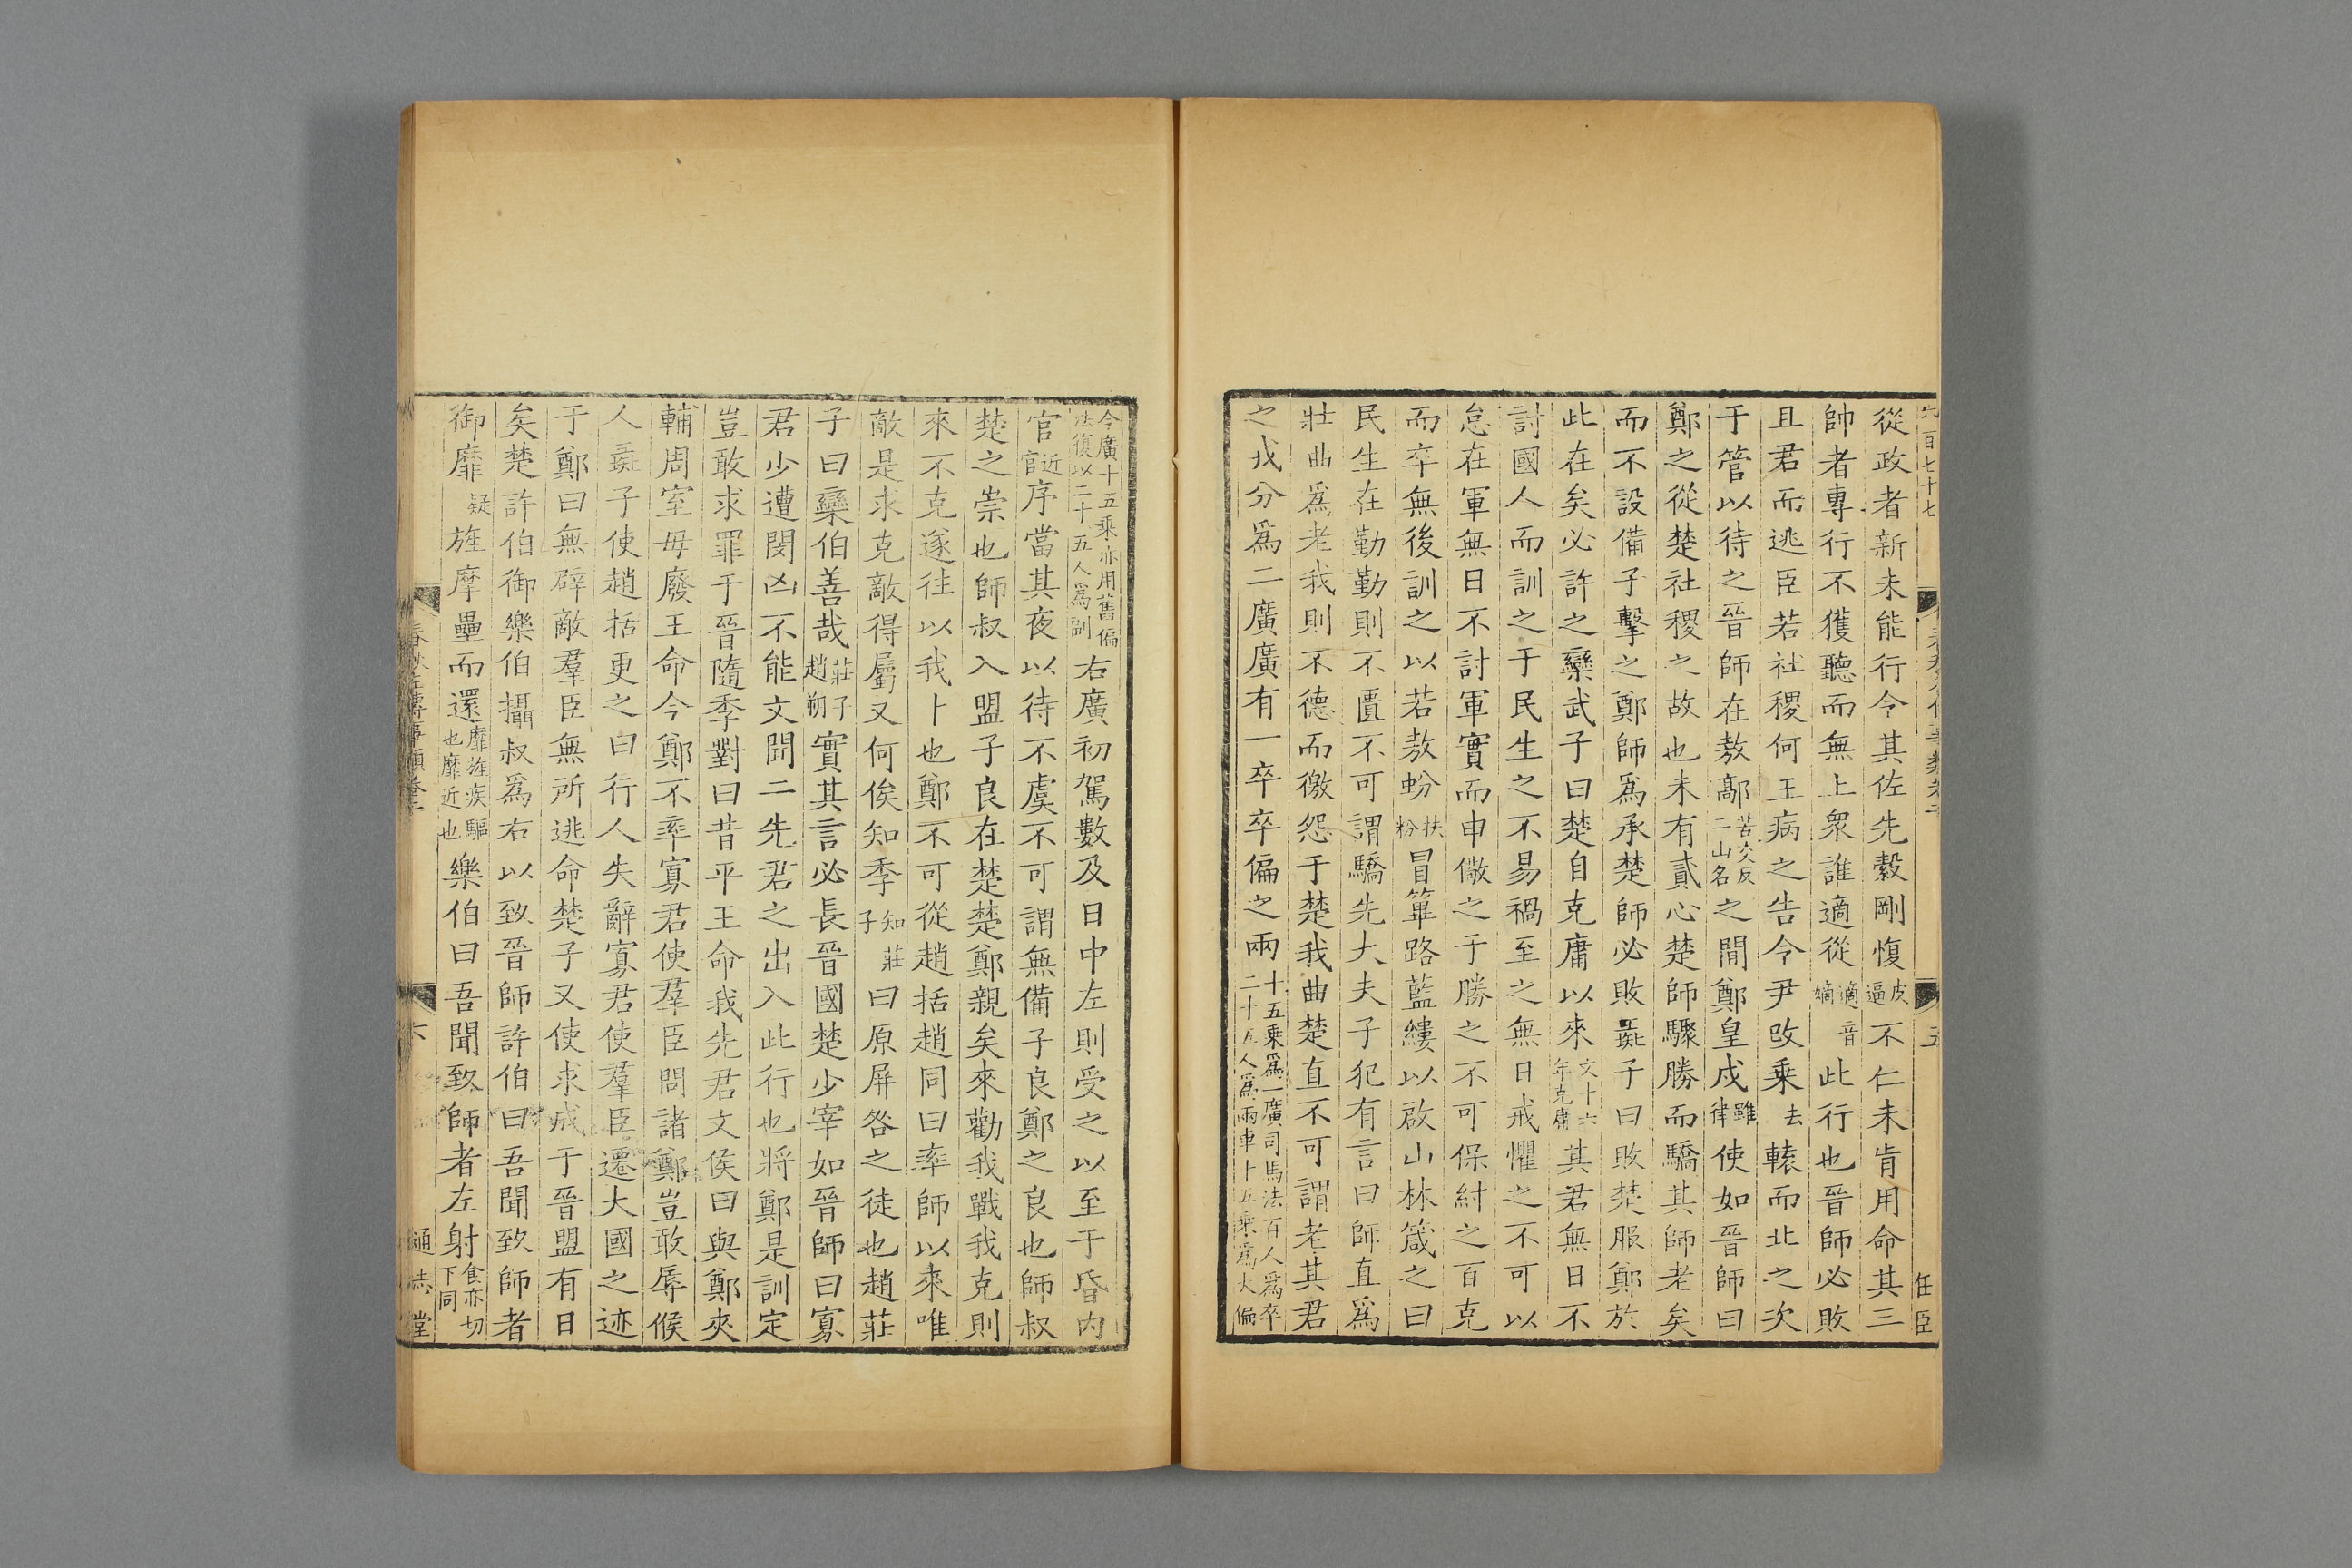 百七十七
五
任臣
從政者新未能行令其佐先縠剛愎皮逼不仁未肯用命其三
帥者專行不獲聽而無上眾誰適從適音嫡此行也晉師必敗
且君而逃臣若社稷何王病之告令尹改乘去轅而北之次
于管以待之晉師在敖鄗苦交反二山名之間鄭皇戌雖律使如晉師曰
鄭之從楚社稷之故也未有貳心楚師驟勝而驕其師老矣
而不設備子擊之鄭師爲承楚師必敗彘子曰敗楚服鄭於
此在矣必許之欒武子曰楚自克庸以來文十六年克庸其君無日不
討國人而訓之于民生之不易禍至之無日戒懼之不可以
怠在軍無日不討軍實而申儆之于勝之不可保紂之百克
而卒無後訓之以若敖蚡扶粉冒篳路藍縷以啟山林箴之曰
民生在勤勤則不匱不可謂驕先大夫子犯有言曰師直爲
壯曲爲老我則不德而徼怨于楚我曲楚直不可謂老其君
之戎分爲二廣廣有一卒卒偏之兩十五乘爲一廣司馬法百人爲卒二十五人爲兩車十五乘爲大偏
今廣十五乘亦用舊偏法復以二十五人爲副右廣初駕數及日中左則受之以至于昏內
官近官序當其夜以待不虞不可謂無備子良鄭之良也師叔
楚之崇也師叔入盟子良在楚楚鄭親矣來勸我戰我克則
來不克遂往以我卜也鄭不可從趙括趙同曰率師以來唯
敵是求克敵得屬又何俟知季知莊子曰原屏咎之徒也趙莊
子曰欒伯善哉莊子趙朔實其言必長晉國楚少宰如晉師曰寡
君少遭閔凶不能文聞二先君之出入此行也將鄭是訓定
豈敢求罪于晉隨季對曰昔平王命我先君文侯曰與鄭夾
輔周室毋廢王命今鄭不率寡君使羣臣問諸鄭豈敢辱候
人彘子使趙括更之曰行人失辭寡君使羣臣遷大國之迹
于鄭曰無辟敵羣臣無所逃命楚子又使求成于晉盟有日
矣楚許伯御樂伯攝叔爲右以致晉師許伯曰吾聞致師者
御靡疑旌摩壘而還靡旌疾驅也靡近也樂伯曰吾聞致師者左射食亦切下同
春秋左傳事類卷三
六
通志堂